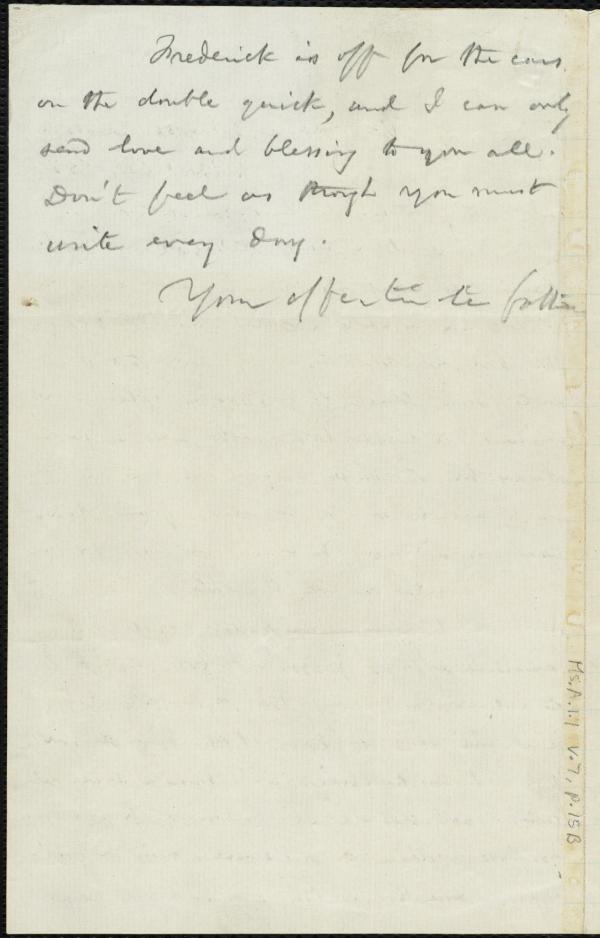 Frederick is off for the cars
on the double quick, and I can only
send love and blessing to you all.
Don't feel as though you must
write every day.
Your affectionate father
Ms. A. 1.1 v. 7, p. 15B